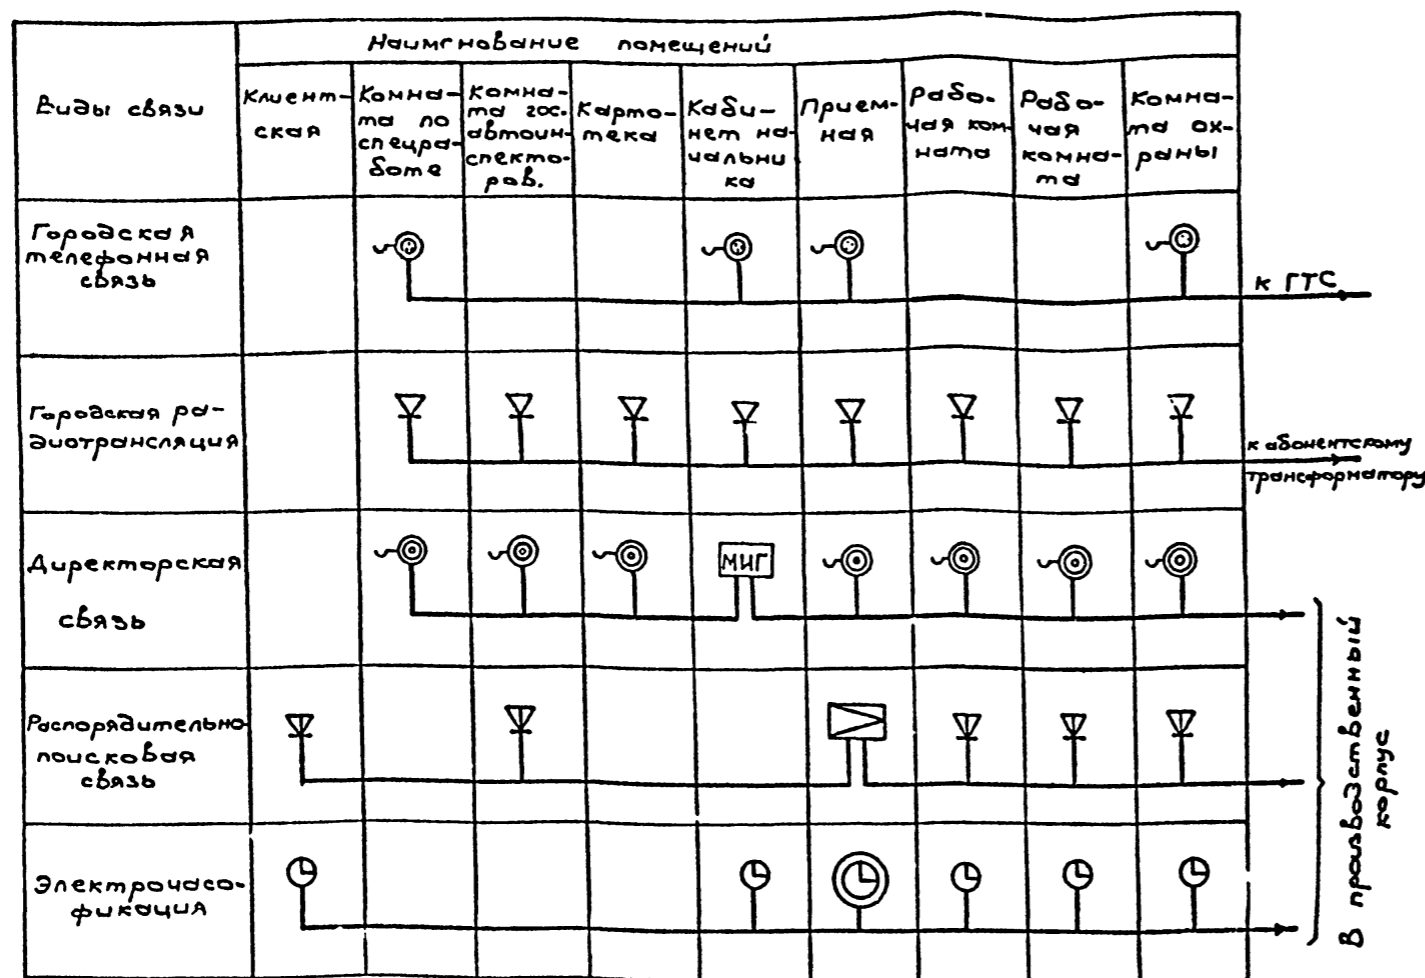 Наименование помещений
Виды связи
Клиент-
ская
Комна-
та по
спецра-
боте
Комна-
та гос.
автоин-
спекто-
ров.
Карто-
тека
Каби-
нет на-
чальни
ка
Прием-
ная
Рабо-
чая ком-
ната
Рабо-
чая
комна-
та
Комна-
та ох-
раны
Городская
телефонная
связь
к ГТС
Городская ра-
диотрансляция
к абонентскому
трансформатору
Директорская
связь
МИГ
Распорядительно
поисковая
связь
Электрочасо-
фикация
В производственный
корпус